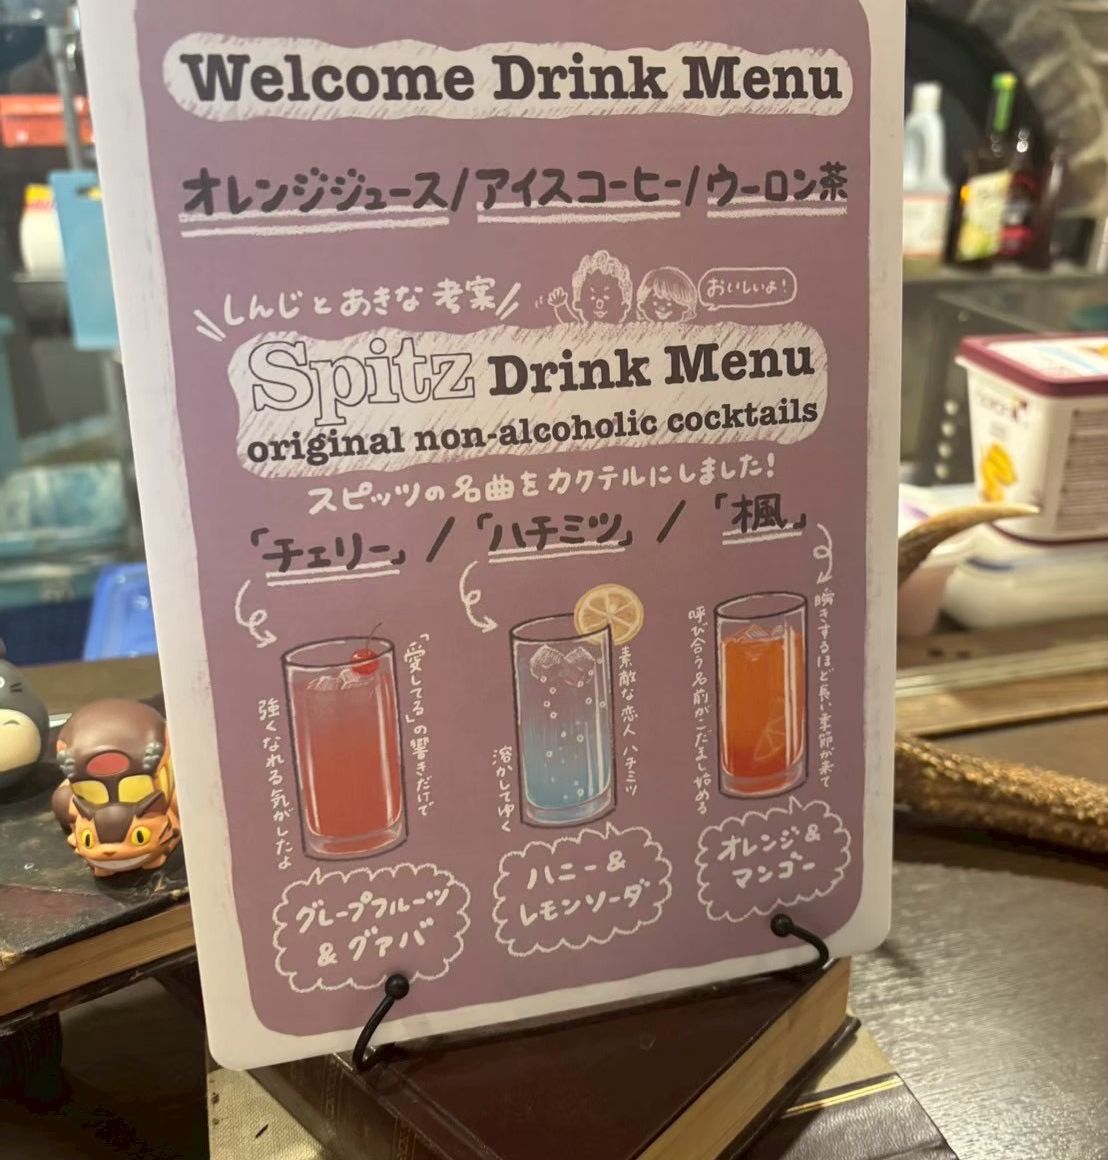 Welcome Drink Menu
オレンジジュース/アイスコーヒー/ウーロン茶
しんじとあきな 考案
おいしいよ!
Spitz Drink Menu
original non-alcoholic cocktails
スピッツの名曲をカクテルにしました!
「チェリー」/「ハチミツ」/「楓」
「愛してる」の響きだけで
強くなれる気がしたよ
素敵な恋人 ハチミツ
溶かしてゆく
瞬きするほど長い季節が来て
呼び合う名前がこだまし始める
グレープフルーツ
& グァバ
ハニー &
レモンソーダ
オレンジ &
マンゴー